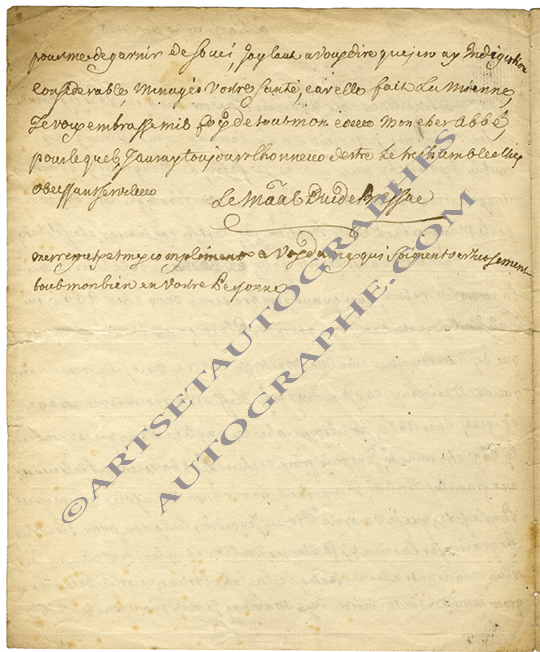 pour me degarnir de soucÿ, jay laut a vous dire que jen ay Indigestion
Considerable, Menagés Vostre Santé, car elle fait La Mienne,
Je vous embrasse mil foys de tout mon coeur Mon cher Abbé
pour lequel Jauray toujours lhonneur destre Le tres humble et tres
Obeissant serviteur
Le Maal Duc de Brissac
mes respets et mes compliments a Vos dames qui soignent
tout mon bien en Vostre Personne
©ARTSETAUTOGRAPHES
AUTOGRAPHE.COM